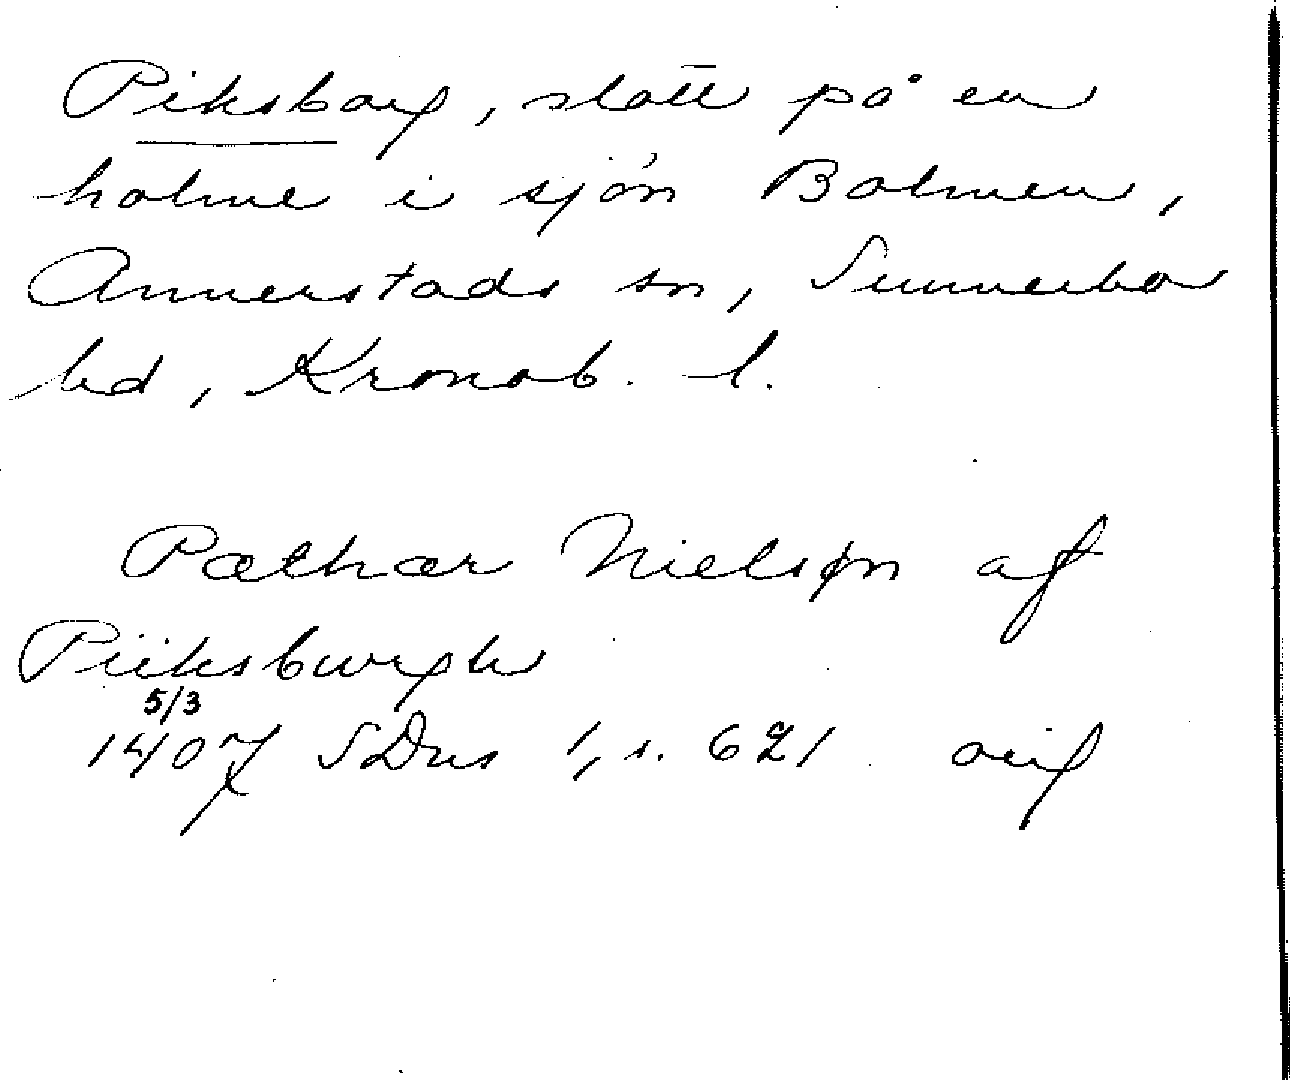 Piksborg, slott på en
holme i sjön Bolmen,
Annerstads sn, Sunnerbo
hd, Kronob. l.
Pæthær Nielsøn af
Piiksburgh
5/3
1407 SDns 1, s. 621 orig